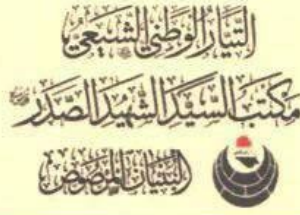 التيار الوطني الشيعي
مكتب السيد الشهيد الصدر
البنيان المرصوص